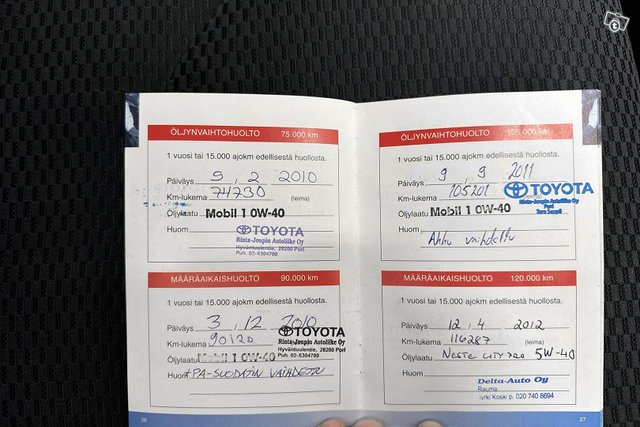 ÖLJYNVAIHTOHUOLTO 75.000 km
1 vuosi tai 15.000 ajokm edellisestä huollosta.
Päiväys 5 . 2 2010
Km-lukema 74730 (leima)
Öljylaatu Mobil 1 0W-40
Huom
TOYOTA
Rinta-Joupin Autoliike Oy
Hyväntuulentie, 28200 Pori
Puh. 02-6304700
MÄÄRÄAIKAISHUOLTO 90.000 km
1 vuosi tai 15.000 ajokm edellisestä huollosta.
Päiväys 3 . 12 2010
Km-lukema 90120
Öljylaatu Mobil 1 0W-40
Huom +PA-SUODATIN VAIHDETTU
TOYOTA
Rinta-Joupin Autoliike Oy
Hyväntuulentie, 28200 Pori
Puh. 02-6304700
26
ÖLJYNVAIHTOHUOLTO 105.000 km
1 vuosi tai 15.000 ajokm edellisestä huollosta.
Päiväys 9 . 9 2011
Km-lukema 105201 (leima)
Öljylaatu Mobil 1 0W-40
Huom Akku vaihdettu
TOYOTA
Rinta-Joupin Autoliike Oy
Pori
Tero Seppä
MÄÄRÄAIKAISHUOLTO 120.000 km
1 vuosi tai 15.000 ajokm edellisestä huollosta.
Päiväys 12 . 4 2012
Km-lukema 116287 (leima)
Öljylaatu Neste City Pro 5W-40
Huom
Delta-Auto Oy
Rauma
p. 020 740 8694
27